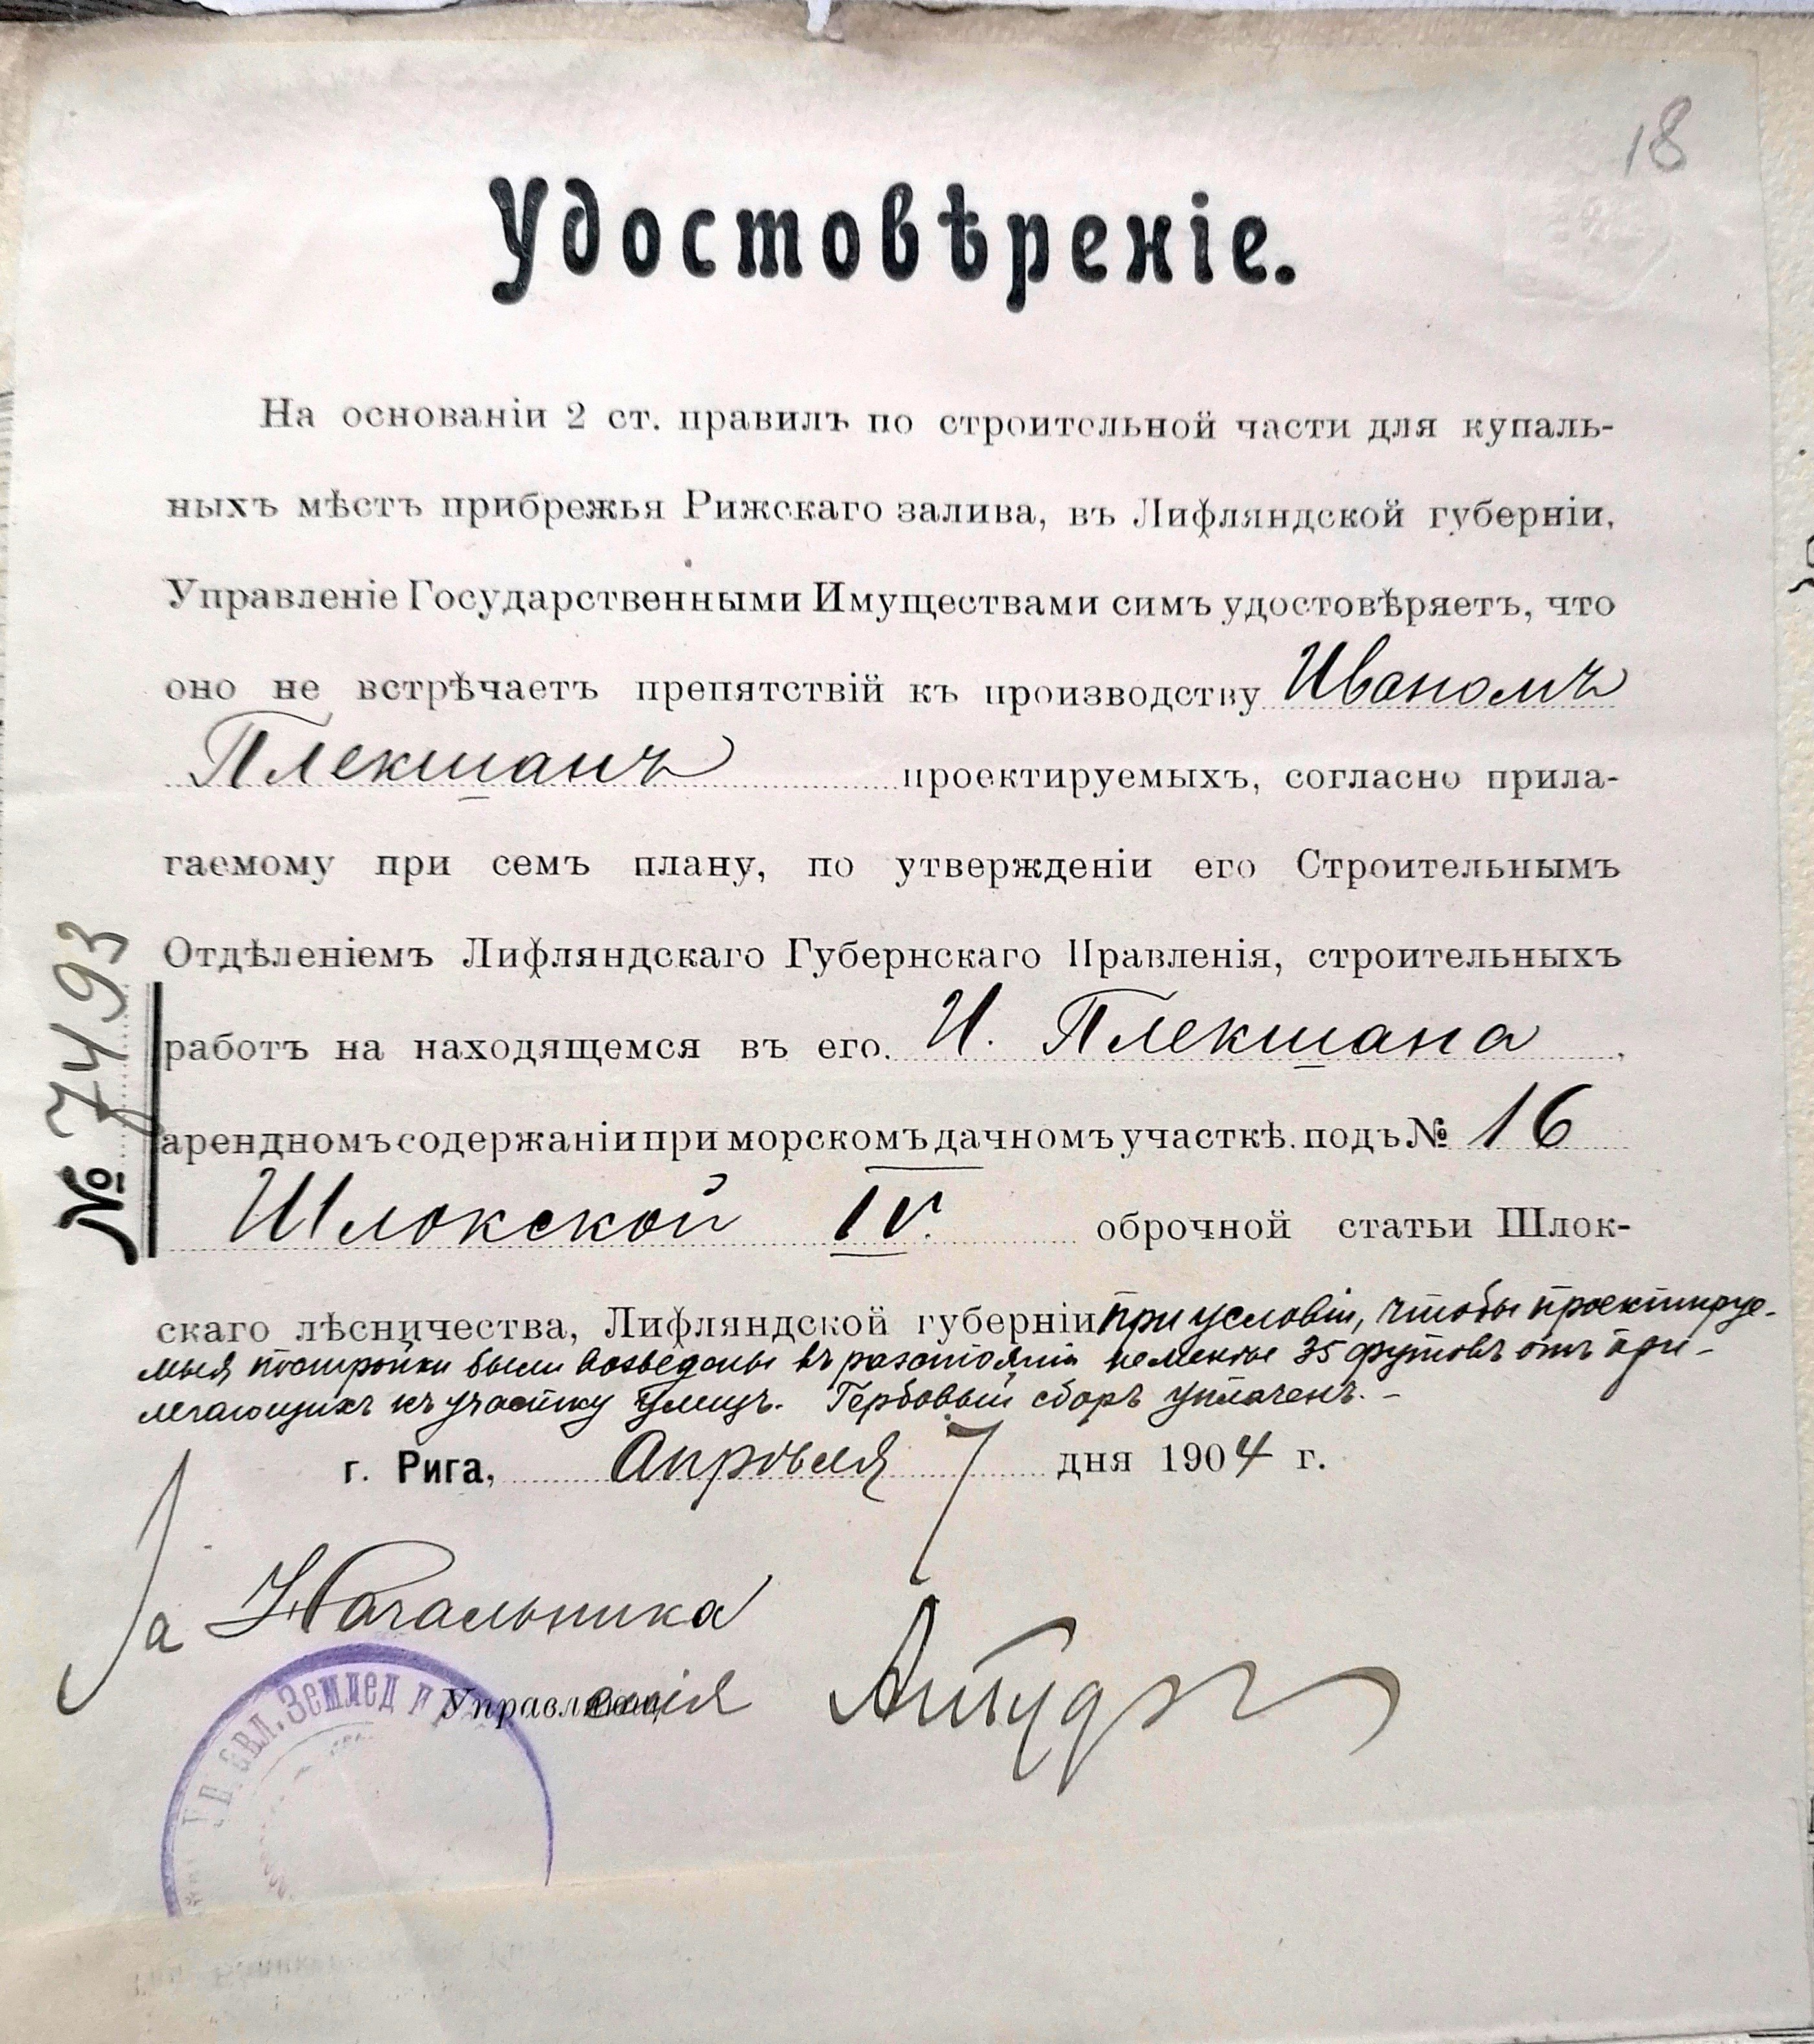 18
Удостовѣреніе.
На основаніи 2 ст. правилъ по строительной части для купаль-
ныхъ мѣстъ прибрежья Рижскаго залива, въ Лифляндской губерніи,
Управленіе Государственными Имуществами симъ удостовѣряетъ, что
оно не встрѣчаетъ препятствій къ производству Иваномъ
Плекшанъ проектируемыхъ, согласно прила-
гаемому при семъ плану, по утвержденіи его Строительнымъ
Отдѣленіемъ Лифляндскаго Губернскаго Правленія, строительныхъ
работъ на находящемся въ его И. Плекшана,
арендномъ содержаніи приморскомъ дачномъ участкѣ подъ № 16
Шлокской IV. оброчной статьи Шлок-
скаго лѣсничества, Лифляндской губерніи при условіи, чтобы проектируе-
мыя постройки были возведены въ разстояніи не менѣе 35 футовъ отъ при-
легающихъ къ участку улицъ. Гербовый сборъ уплаченъ. –
г. Рига, Апрѣля 7 дня 1904 г.
№ 7493
За Начальника
Управленія
Управл. Землед и